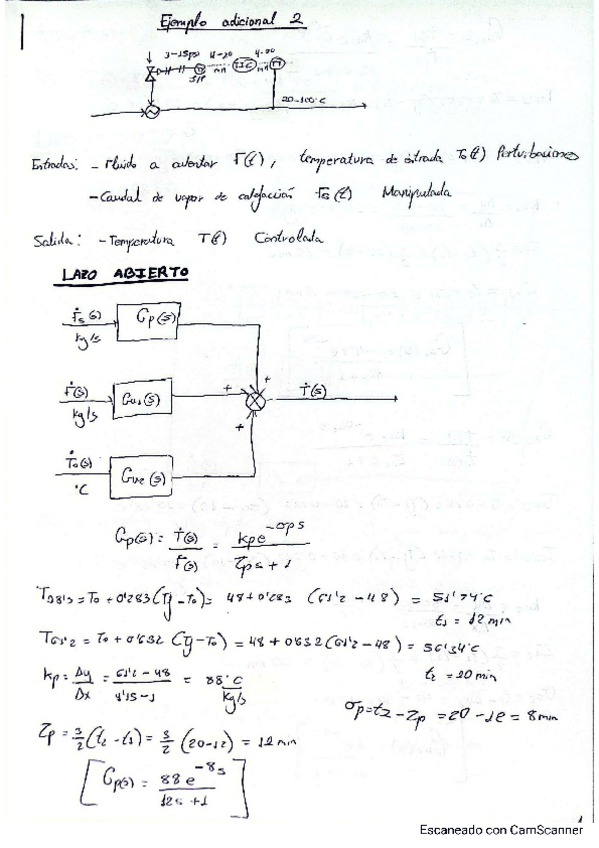 Ejemplo adicional 2
3-15psi 4-20 mA 4-20 mA
TIC TT
I/P
20-100°C
Entradas: - Fluido a calentar F(t), temperatura de entrada To(t) Perturbaciones
- Caudal de vapor de calefacción Fs(t) Manipulada
Salida: - Temperatura T(t) Controlada
LAZO ABIERTO
Fs(s) Gp(s)
kg/s
F(s) Gu1(s) + + T(s)
kg/s
+
To(s) Gu2(s)
°C
Gp(s) = T(s)/F(s) = kp e^-σps / τps + 1
T28'3 = To + 0'283 (Tf - To) = 48 + 0'283 (61'2 - 48) = 51'74°C
t1 = 12 min
T63'2 = To + 0'632 (Tf - To) = 48 + 0'632 (61'2 - 48) = 56'34°C
t2 = 20 min
kp = Δy/Δx = 61'2 - 48 / 1'15 - 1 = 88 °C/kg/s
σp = t2 - τp = 20 - 12 = 8 min
τp = 3/2 (t2 - t1) = 3/2 (20 - 12) = 12 min
[Gp(s) = 88 e^-8s / 12s + 1]
Escaneado con CamScanner